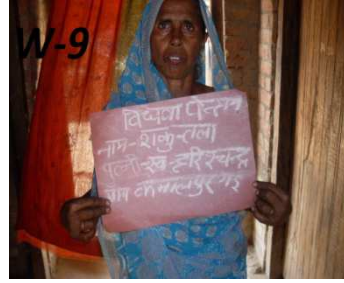 W-9
विधवा पेन्शन
नाम-शकुन्तला
पत्नी-स्व-हरिश्चन्द्र
ग्राम कमालपुर